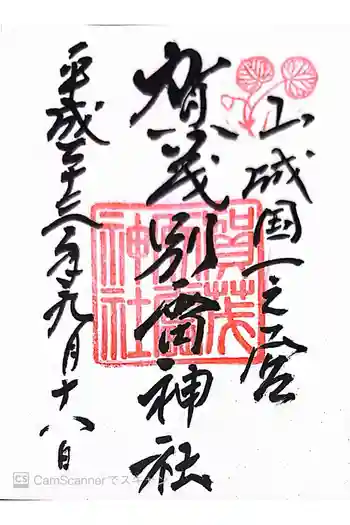 山城国一之宮
賀茂別雷神社
平成二十三年九月十八日
賀茂
別雷
神社
CS CamScannerでスキャン